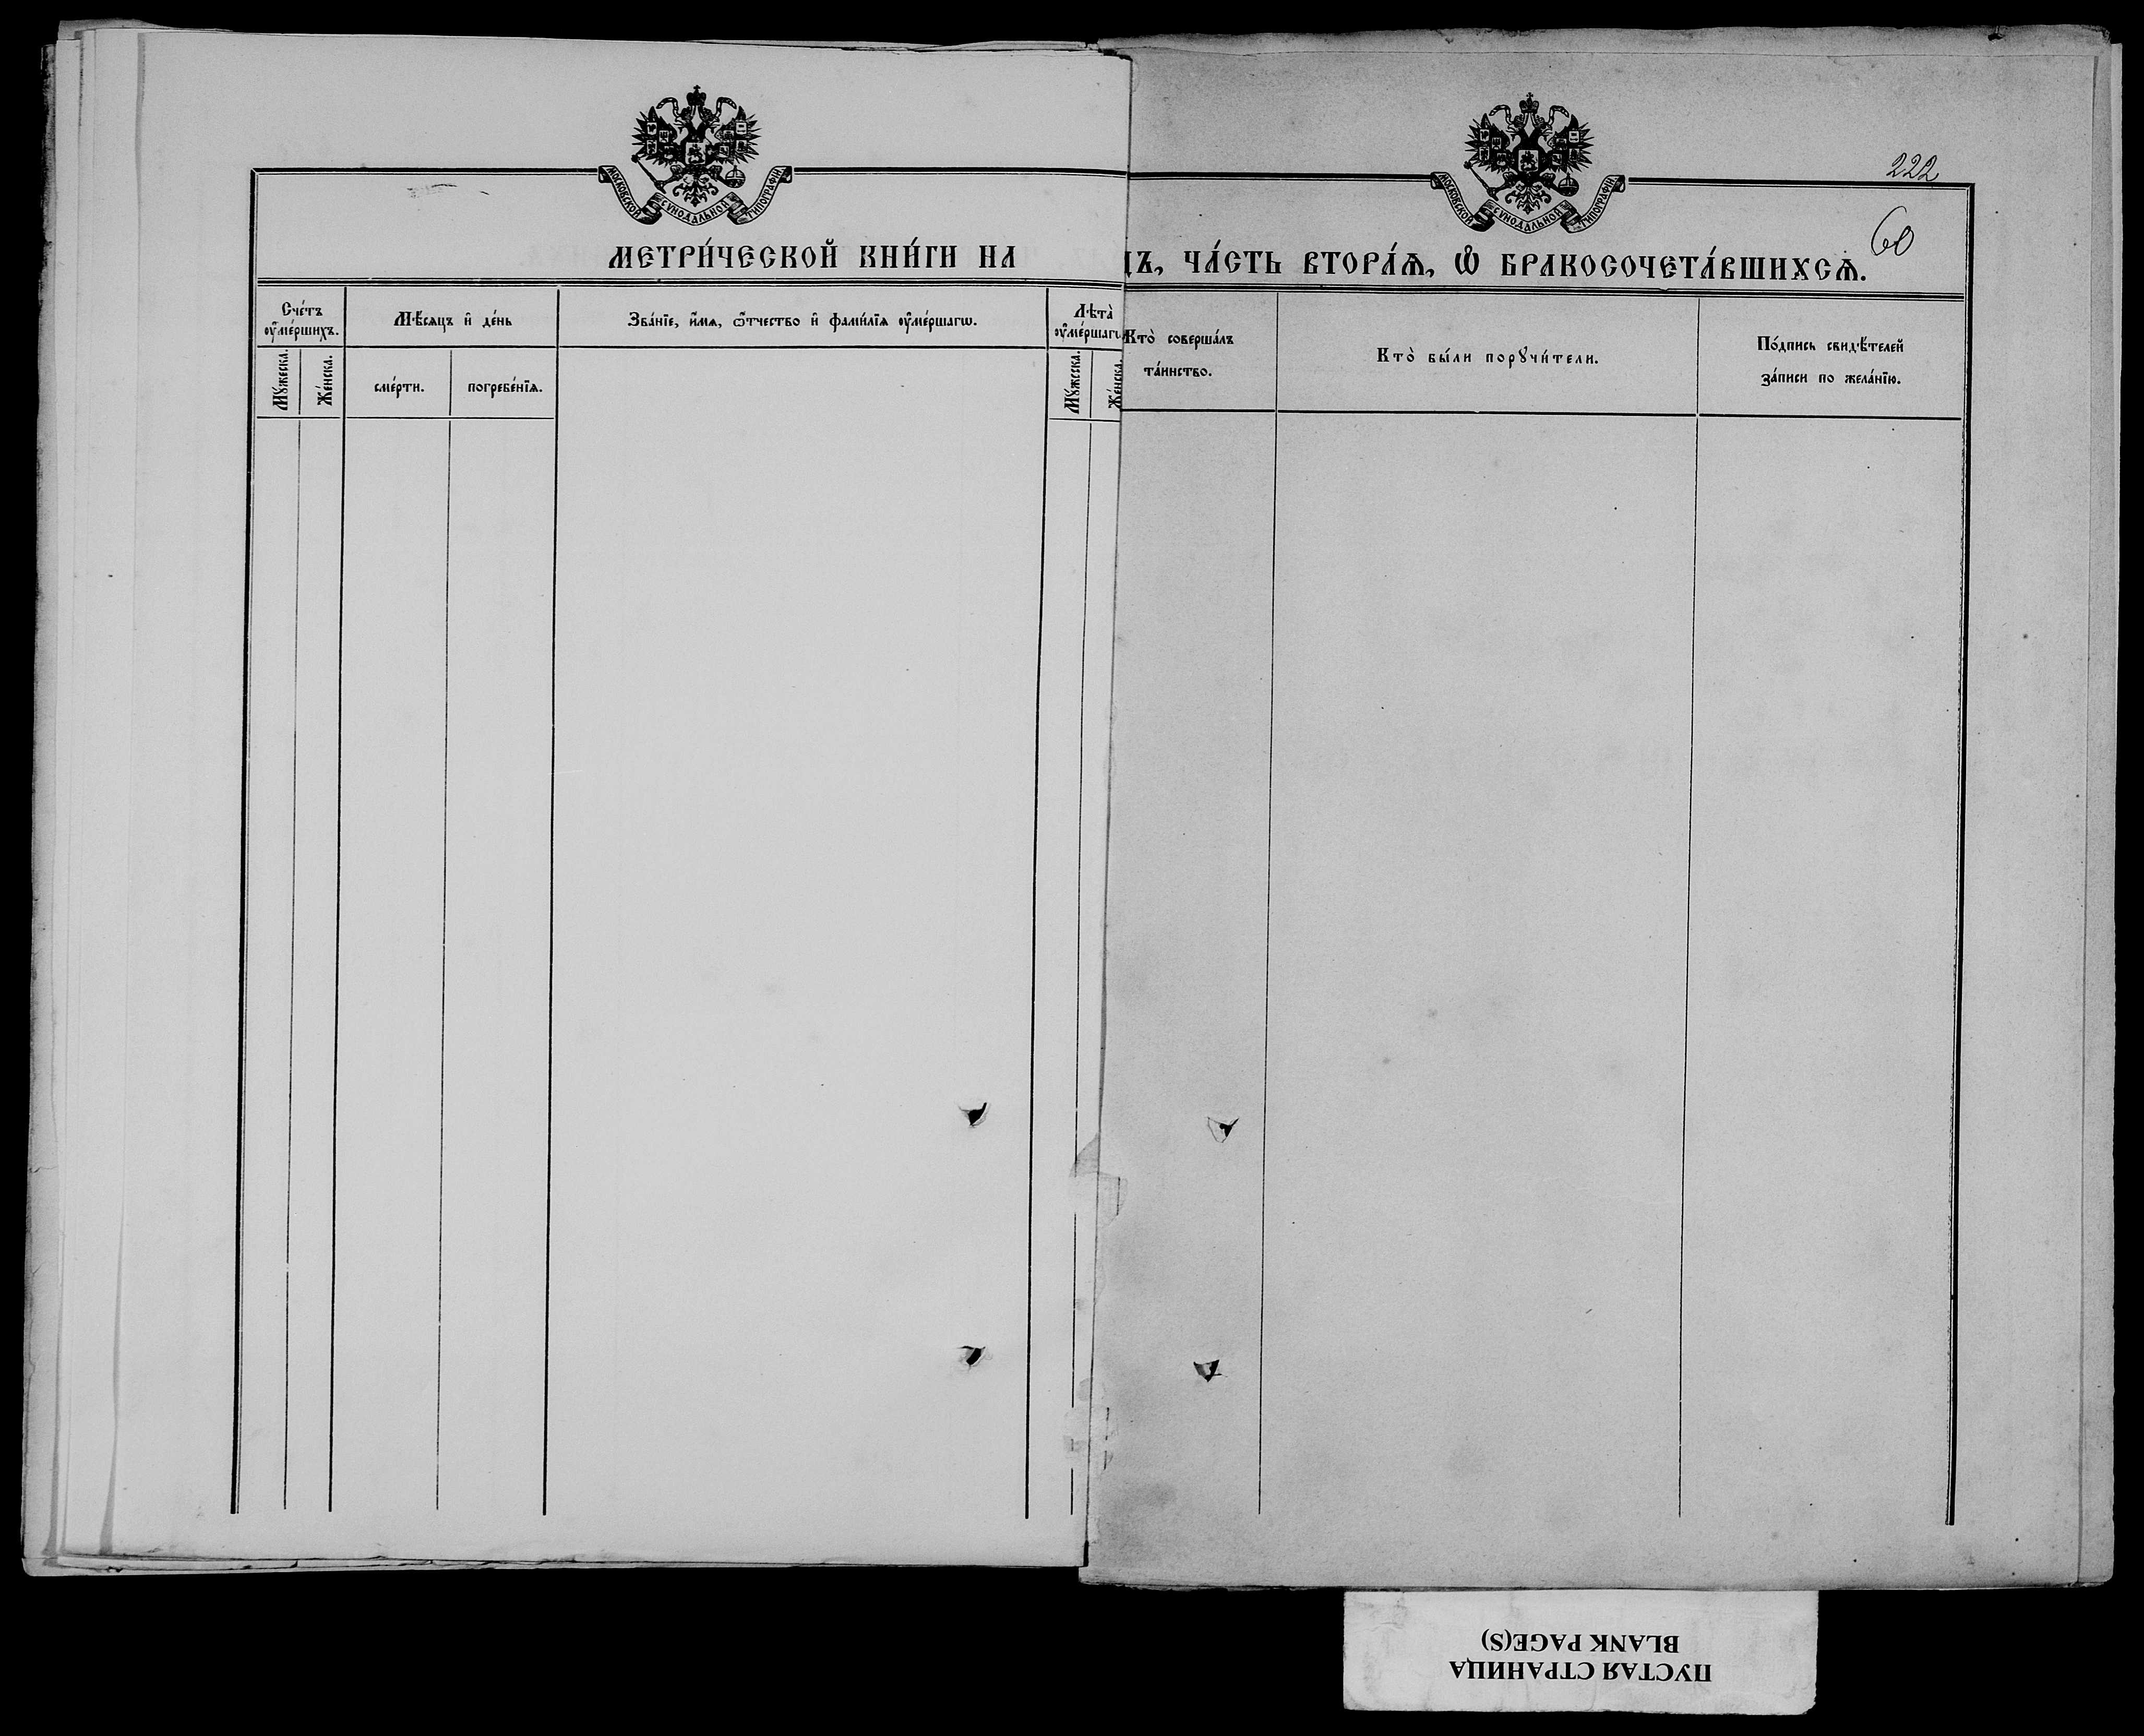 МОСКОВСКОЙ СУНОДАЛЬНОЙ ТИПОГРАФІИ
МЕТРИ́ЧЕСКОЙ КНИ́ГИ НА
Сче́тъ
ᲂу҆ме́ршихъ.
Мꙋ́жеска.
Же́нска.
Мѣ́сяцъ и҆ де́нь
сме́рти.
погребе́нїѧ.
Зва́нїе, и҆́мѧ, ѻ҆́тчество и҆ фами́лїѧ ᲂу҆ме́ршагѡ.
Лѣ́та̀
ᲂу҆ме́ршаг
Мꙋ́жеска.
Же́нска
МОСКОВСКОЙ СУНОДАЛЬНОЙ ТИПОГРАФІИ
222
60
дъ, ЧА́СТЬ ВТОРА́Ѧ, Ѽ БРАКОСОЧЕТА́ВШИХСѦ.
Кто̀ соверша́лъ
та́инство.
Кто̀ бы́ли порꙋчи́тели.
По́дпись свидѣ́телей
за́писи по жела́нїю.
ПУСТАЯ СТРАНИЦА
BLANK PAGE(S)